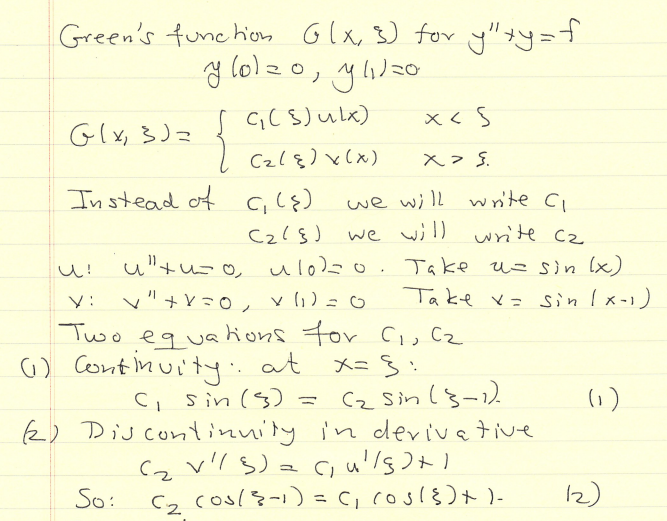 Green's function G(x, ξ) for y''+y=f
y(0)=0, y(1)=0
G(x, ξ)= { c₁(ξ)u(x) x < ξ
c₂(ξ)v(x) x > ξ.
Instead of c₁(ξ) we will write c₁
c₂(ξ) we will write c₂
u: u''+u=0, u(0)=0. Take u= sin(x)
v: v''+v=0, v(1)=0 Take v= sin(x-1)
Two equations for c₁, c₂
(1) Continuity: at x=ξ:
c₁ sin(ξ) = c₂ sin(ξ-1). (1)
(2) Discontinuity in derivative
c₂ v'(ξ) = c₁ u'(ξ)+1
So: c₂ cos(ξ-1) = c₁ cos(ξ)+1. (2)